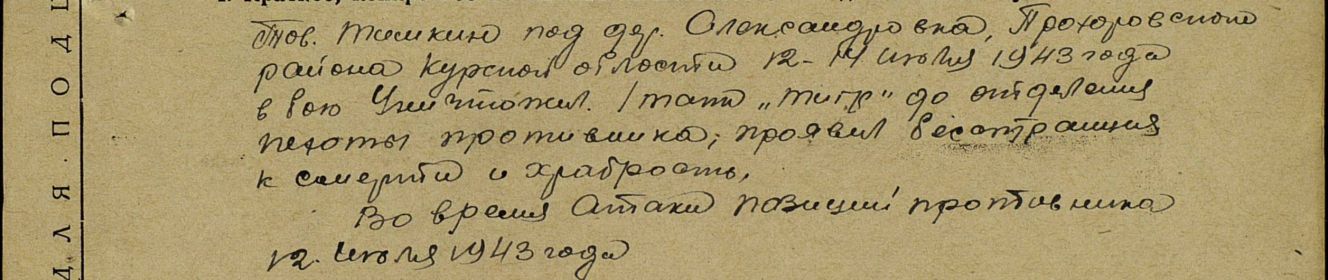 Тов. Тишкин под дер. Олександровка, Прохоровского
района Курской области 12-14 июля 1943 года
в бою Уничтожил 1 танк „тигр" до отделения
пехоты противника, проявил бесстрашия
к смерти и храбрость,
Во время Атаки позиций противника
12. июля 1943 года
ДЛЯ ПОДШ